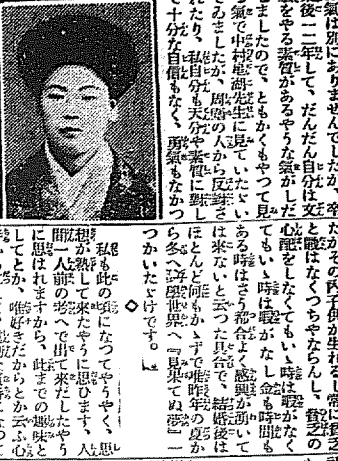 氣は別にありませんでしたが、卒
後一二年して、だんだん自分は文
をやる素質があるやうな氣がしだ
ましたので、ともかくもやつて見
る氣で中村星湖先生に見ていたゞい
てゐましたが、周圍の人から反對さ
れたり、私自分も天分や素質に對し
て十分な自信もなく、勇氣もなかつ
たがその内子供が生れるし常に貧乏
と戰はなくつちやならんし、貧乏の
心配をしなくてもいゝ時は暇がなく
てもいゝ時は暇がなし金も時間も
ある時はさう都合よく感興が湧いて
は來ないと云つた具合で、結婚後は
ほとんど何もかゝずで唯昨年の夏か
ら冬へ學世界へ『見果てぬ夢』一
つかいたゞけです。」
◇
私も此の頃になつてやうやく、思
想が熟して來たやうに思ひます、人
間一人前の考へで出て來だしたやう
に思はれますから、此までの趣味と
してとか、唯好きだからとか云ふ心